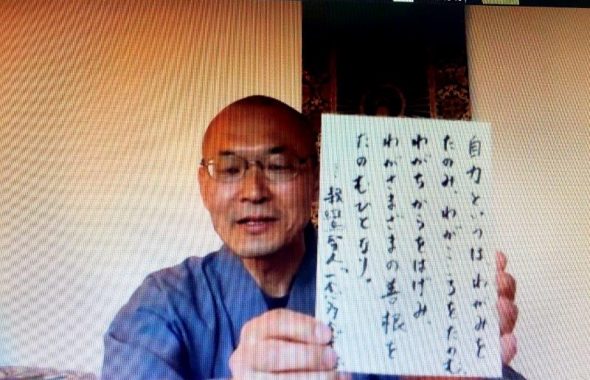 自力といつは わがみを
たのみ、わがこころをたのむ、
わがちからをはげみ、
わがさまざまの善根を
たのむひとなり。
親鸞聖人